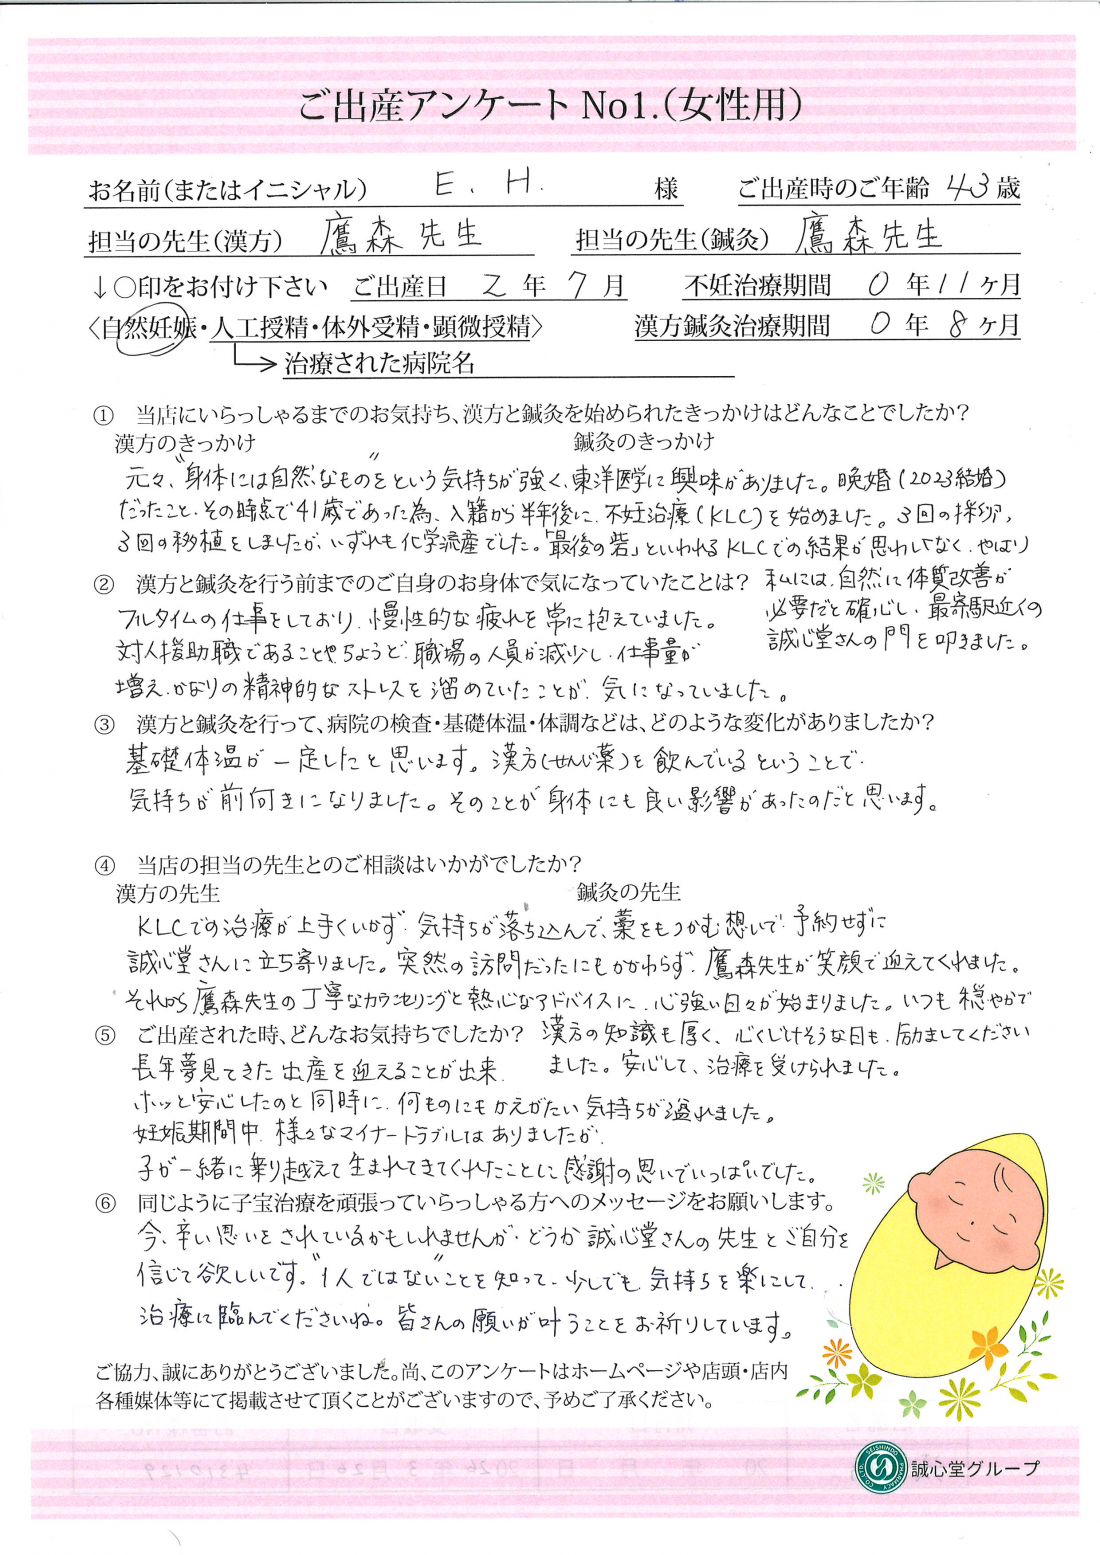 ご出産アンケート No1.（女性用）
お名前（またはイニシャル） E. H. 様 ご出産時のご年齢 43 歳
担当の先生（漢方） 鷹森先生 担当の先生（鍼灸） 鷹森先生
↓○印をお付け下さい ご出産日 2 年 7 月 不妊治療期間 0 年 11 ヶ月
〈自然妊娠・人工授精・体外受精・顕微授精〉 漢方鍼灸治療期間 0 年 8 ヶ月
治療された病院名
① 当店にいらっしゃるまでのお気持ち、漢方と鍼灸を始められたきっかけはどんなことでしたか？
漢方のきっかけ 鍼灸のきっかけ
元々、"身体には自然なものを"という気持ちが強く、東洋医学に興味がありました。晩婚（2023結婚）
だったこと、その時点で41歳であった為、入籍から半年後に、不妊治療（KLC）を始めました。3回の採卵，
3回の移植をしましたが、いずれも化学流産でした。「最後の砦」といわれるKLCでの結果が思わしくなく、やはり
私には、自然に体質改善が
必要だと確心し、最寄駅近くの
誠心堂さんの門を叩きました。
② 漢方と鍼灸を行う前までのご自身のお身体で気になっていたことは？
フルタイムの仕事をしており、慢性的な疲れを常に抱えていました。
対人援助職であることや、ちょうど、職場の人員が減少し、仕事量が
増え、かなりの精神的なストレスを溜めていたことが、気になっていました。
③ 漢方と鍼灸を行って、病院の検査・基礎体温・体調などは、どのような変化がありましたか？
基礎体温が一定したと思います。漢方（せんじ薬）を飲んでいるということで、
気持ちが前向きになりました。そのことが身体にも良い影響があったのだと思います。
④ 当店の担当の先生とのご相談はいかがでしたか？
漢方の先生 鍼灸の先生
KLCでの治療が上手くいかず、気持ちが落ち込んで、藁をもつかむ想いで、予約せずに
誠心堂さんに立ち寄りました。突然の訪問だったにもかかわらず、鷹森先生が笑顔で迎えてくれました。
それから鷹森先生の丁寧なカウンセリングと熱心なアドバイスに、心強い日々が始まりました。いつも穏やかで
漢方の知識も厚く、心くじけそうな日も、励ましてください
ました。安心して、治療を受けられました。
⑤ ご出産された時、どんなお気持ちでしたか？
長年夢見てきた出産を迎えることが出来、
ホッと安心したのと同時に、何ものにもかえがたい気持ちが溢れました。
妊娠期間中、様々なマイナートラブルはありましたが、
子が一緒に乗り越えて生まれてきてくれたことに感謝の思いでいっぱいでした。
⑥ 同じように子宝治療を頑張っていらっしゃる方へのメッセージをお願いします。
今、辛い思いをされているかもしれませんが、どうか誠心堂さんの先生とご自分を
信じて欲しいです。"1人ではない"ことを知って、少しでも気持ちを楽にして、
治療に臨んでくださいね。皆さんの願いが叶うことをお祈りしています。
ご協力、誠にありがとうございました。尚、このアンケートはホームページや店頭・店内
各種媒体等にて掲載させて頂くことがございますので、予めご了承ください。
誠心堂グループ